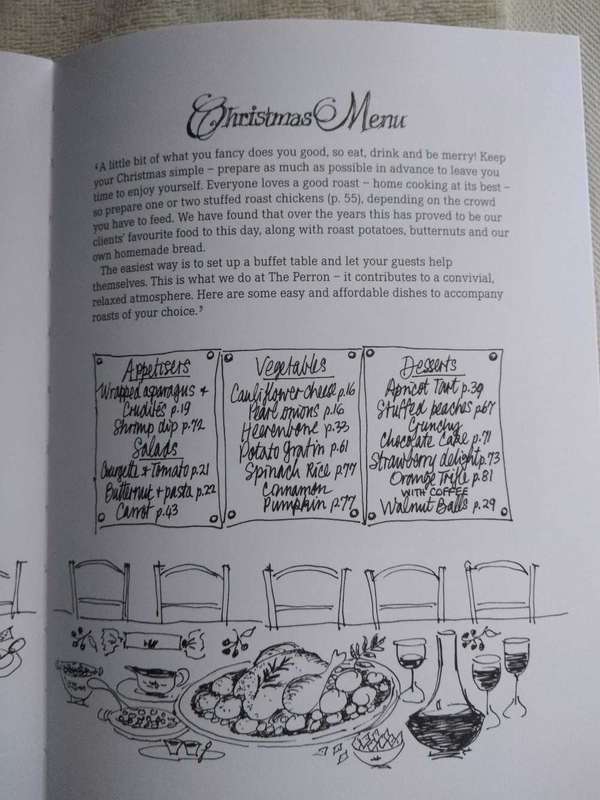 Christmas Menu
‘A little bit of what you fancy does you good, so eat, drink and be merry! Keep
your Christmas simple – prepare as much as possible in advance to leave you
time to enjoy yourself. Everyone loves a good roast – home cooking at its best –
so prepare one or two stuffed roast chickens (p. 55), depending on the crowd
you have to feed. We have found that over the years this has proved to be our
clients’ favourite food to this day, along with roast potatoes, butternuts and our
own homemade bread.
The easiest way is to set up a buffet table and let your guests help
themselves. This is what we do at The Perron – it contributes to a convivial,
relaxed atmosphere. Here are some easy and affordable dishes to accompany
roasts of your choice.’
Appetisers
Wrapped asparagus &
Crudités p.19
Shrimp dip p.72
Salads
Courgette & Tomato p.21
Butternut & pasta p.22
Carrot p.43
Vegetables
Cauliflower cheese p.16
Pearl onions p.16
Heerenbone p.33
Potato Gratin p.61
Spinach Rice p.77
Cinnamon
Pumpkin p.77
Desserts
Apricot Tart p.39
Stuffed peaches p.67
Crunchy
Chocolate Cake p.71
Strawberry delight p.73
Orange Trifle p.81
WITH COFFEE
Walnut Balls p.29